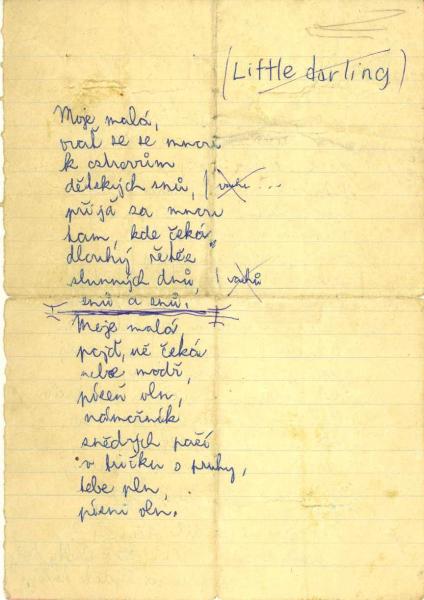 (Little darling)
Moje malá,
vrať se se mnou
k ostrovům
dětských snů,
přijď za mnou
tam, kde čeká
dlouhý řetěz
slunných dnů,
snů a snů.
Moje malá
pojď, už čeká
nebe modř,
píseň vln,
námořník
snědých paží
v tričku s pruhy,
tebe pln,
písní vln.